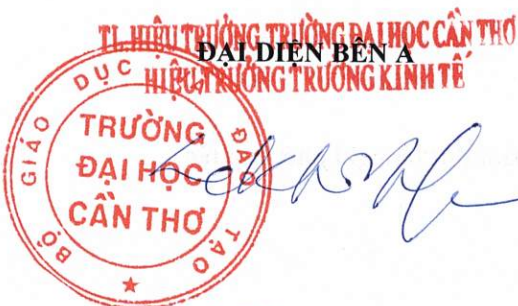 TL. HIỆU TRƯỞNG TRƯỜNG ĐẠI HỌC CẦN THƠ
ĐẠI DIỆN BÊN A
HIỆU TRƯỞNG TRƯỜNG KINH TẾ
BỘ GIÁO DỤC ĐÀO TẠO
TRƯỜNG
ĐẠI HỌC
CẦN THƠ